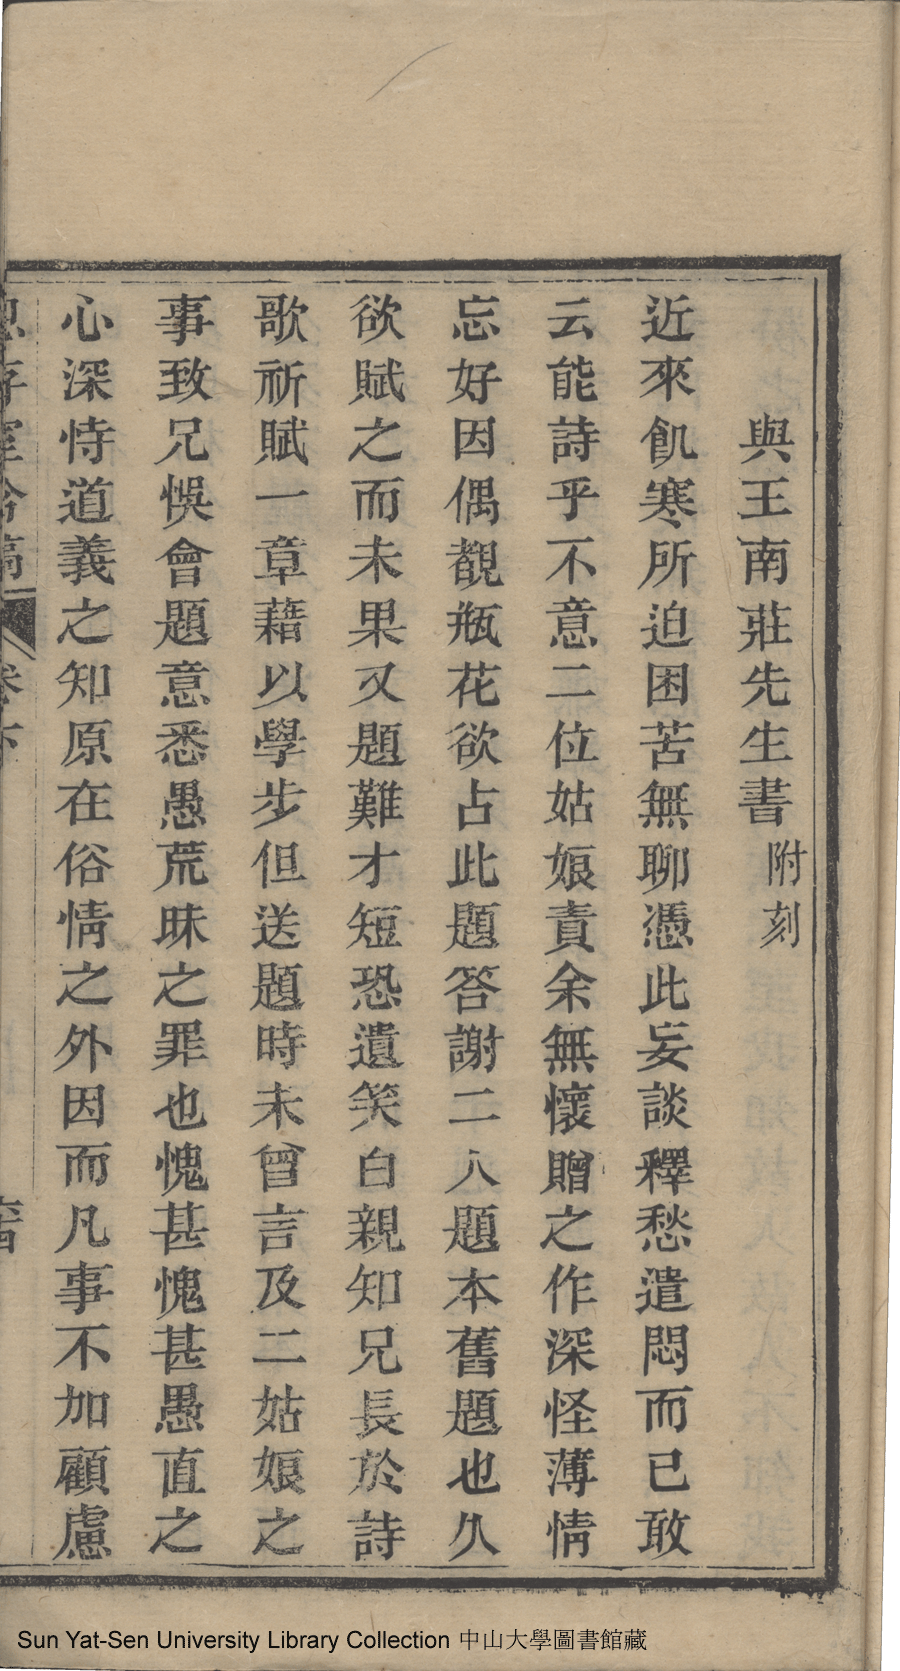 與王南莊先生書 附刻
近來飢寒所迫困苦無聊憑此妄談釋愁遣悶而已敢
云能詩乎不意二位姑娘責余無懷贈之作深怪薄情
忘好因偶觀瓶花欲占此題答謝二人題本舊題也久
欲賦之而未果又題難才短恐遺笑白親知兄長於詩
歌祈賦一章藉以學步但送題時未曾言及二姑娘之
事致兄悞會題意悉愚荒昧之罪也愧甚愧甚愚直之
心深恃道義之知原在俗情之外因而凡事不加顧慮
Sun Yat-Sen University Library Collection 中山大學圖書館藏